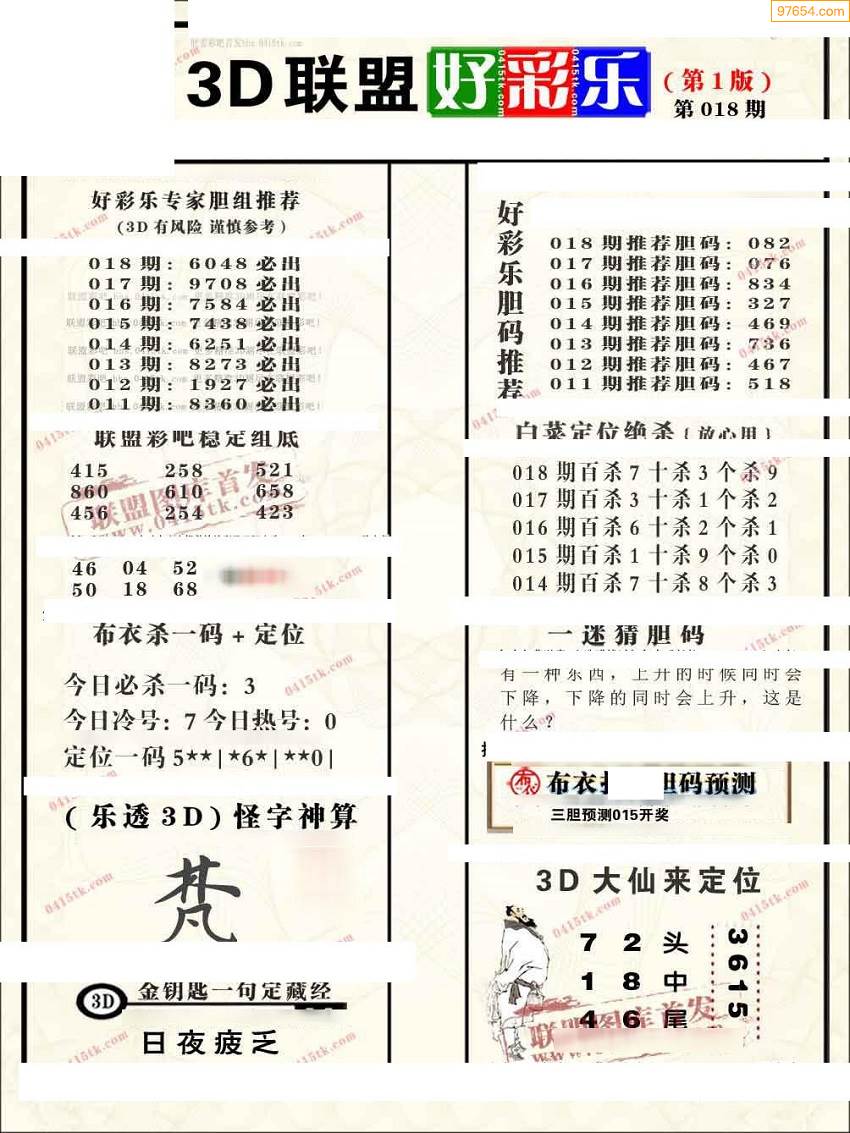 97654.com
3D联盟好彩乐
(第1版)
第018期
好彩乐专家胆组推荐
(3D有风险 谨慎参考)
018期: 6048必出
017期: 9708必出
016期: 7584必出
015期: 7438必出
014期: 6251必出
013期: 8273必出
012期: 1927必出
011期: 8360必出
联盟彩吧稳定组底
415 258 521
860 610 658
456 254 423
46 04 52
50 18 68
布衣杀一码+定位
今日必杀一码: 3
今日冷号: 7 今日热号: 0
定位一码 5**|*6*|**0|
(乐透3D)怪字神算
梵
3D 金钥匙一句定藏经
日夜疲乏
好彩乐胆码推荐
018期推荐胆码: 082
017期推荐胆码: 076
016期推荐胆码: 834
015期推荐胆码: 327
014期推荐胆码: 469
013期推荐胆码: 736
012期推荐胆码: 467
011期推荐胆码: 518
白菜定位绝杀{放心用}
018期百杀7十杀3个杀9
017期百杀3十杀1个杀2
016期百杀6十杀2个杀1
015期百杀1十杀9个杀0
014期百杀7十杀8个杀3
一迷猜胆码
有一种东西，上升的时候同时会
下降，下降的同时会上升，这是
什么?
布衣 胆码预测
三胆预测015开奖
3D大仙来定位
7 2 头
1 8 中
4 6 尾
3615
联盟图库首发
www.0415tk.com